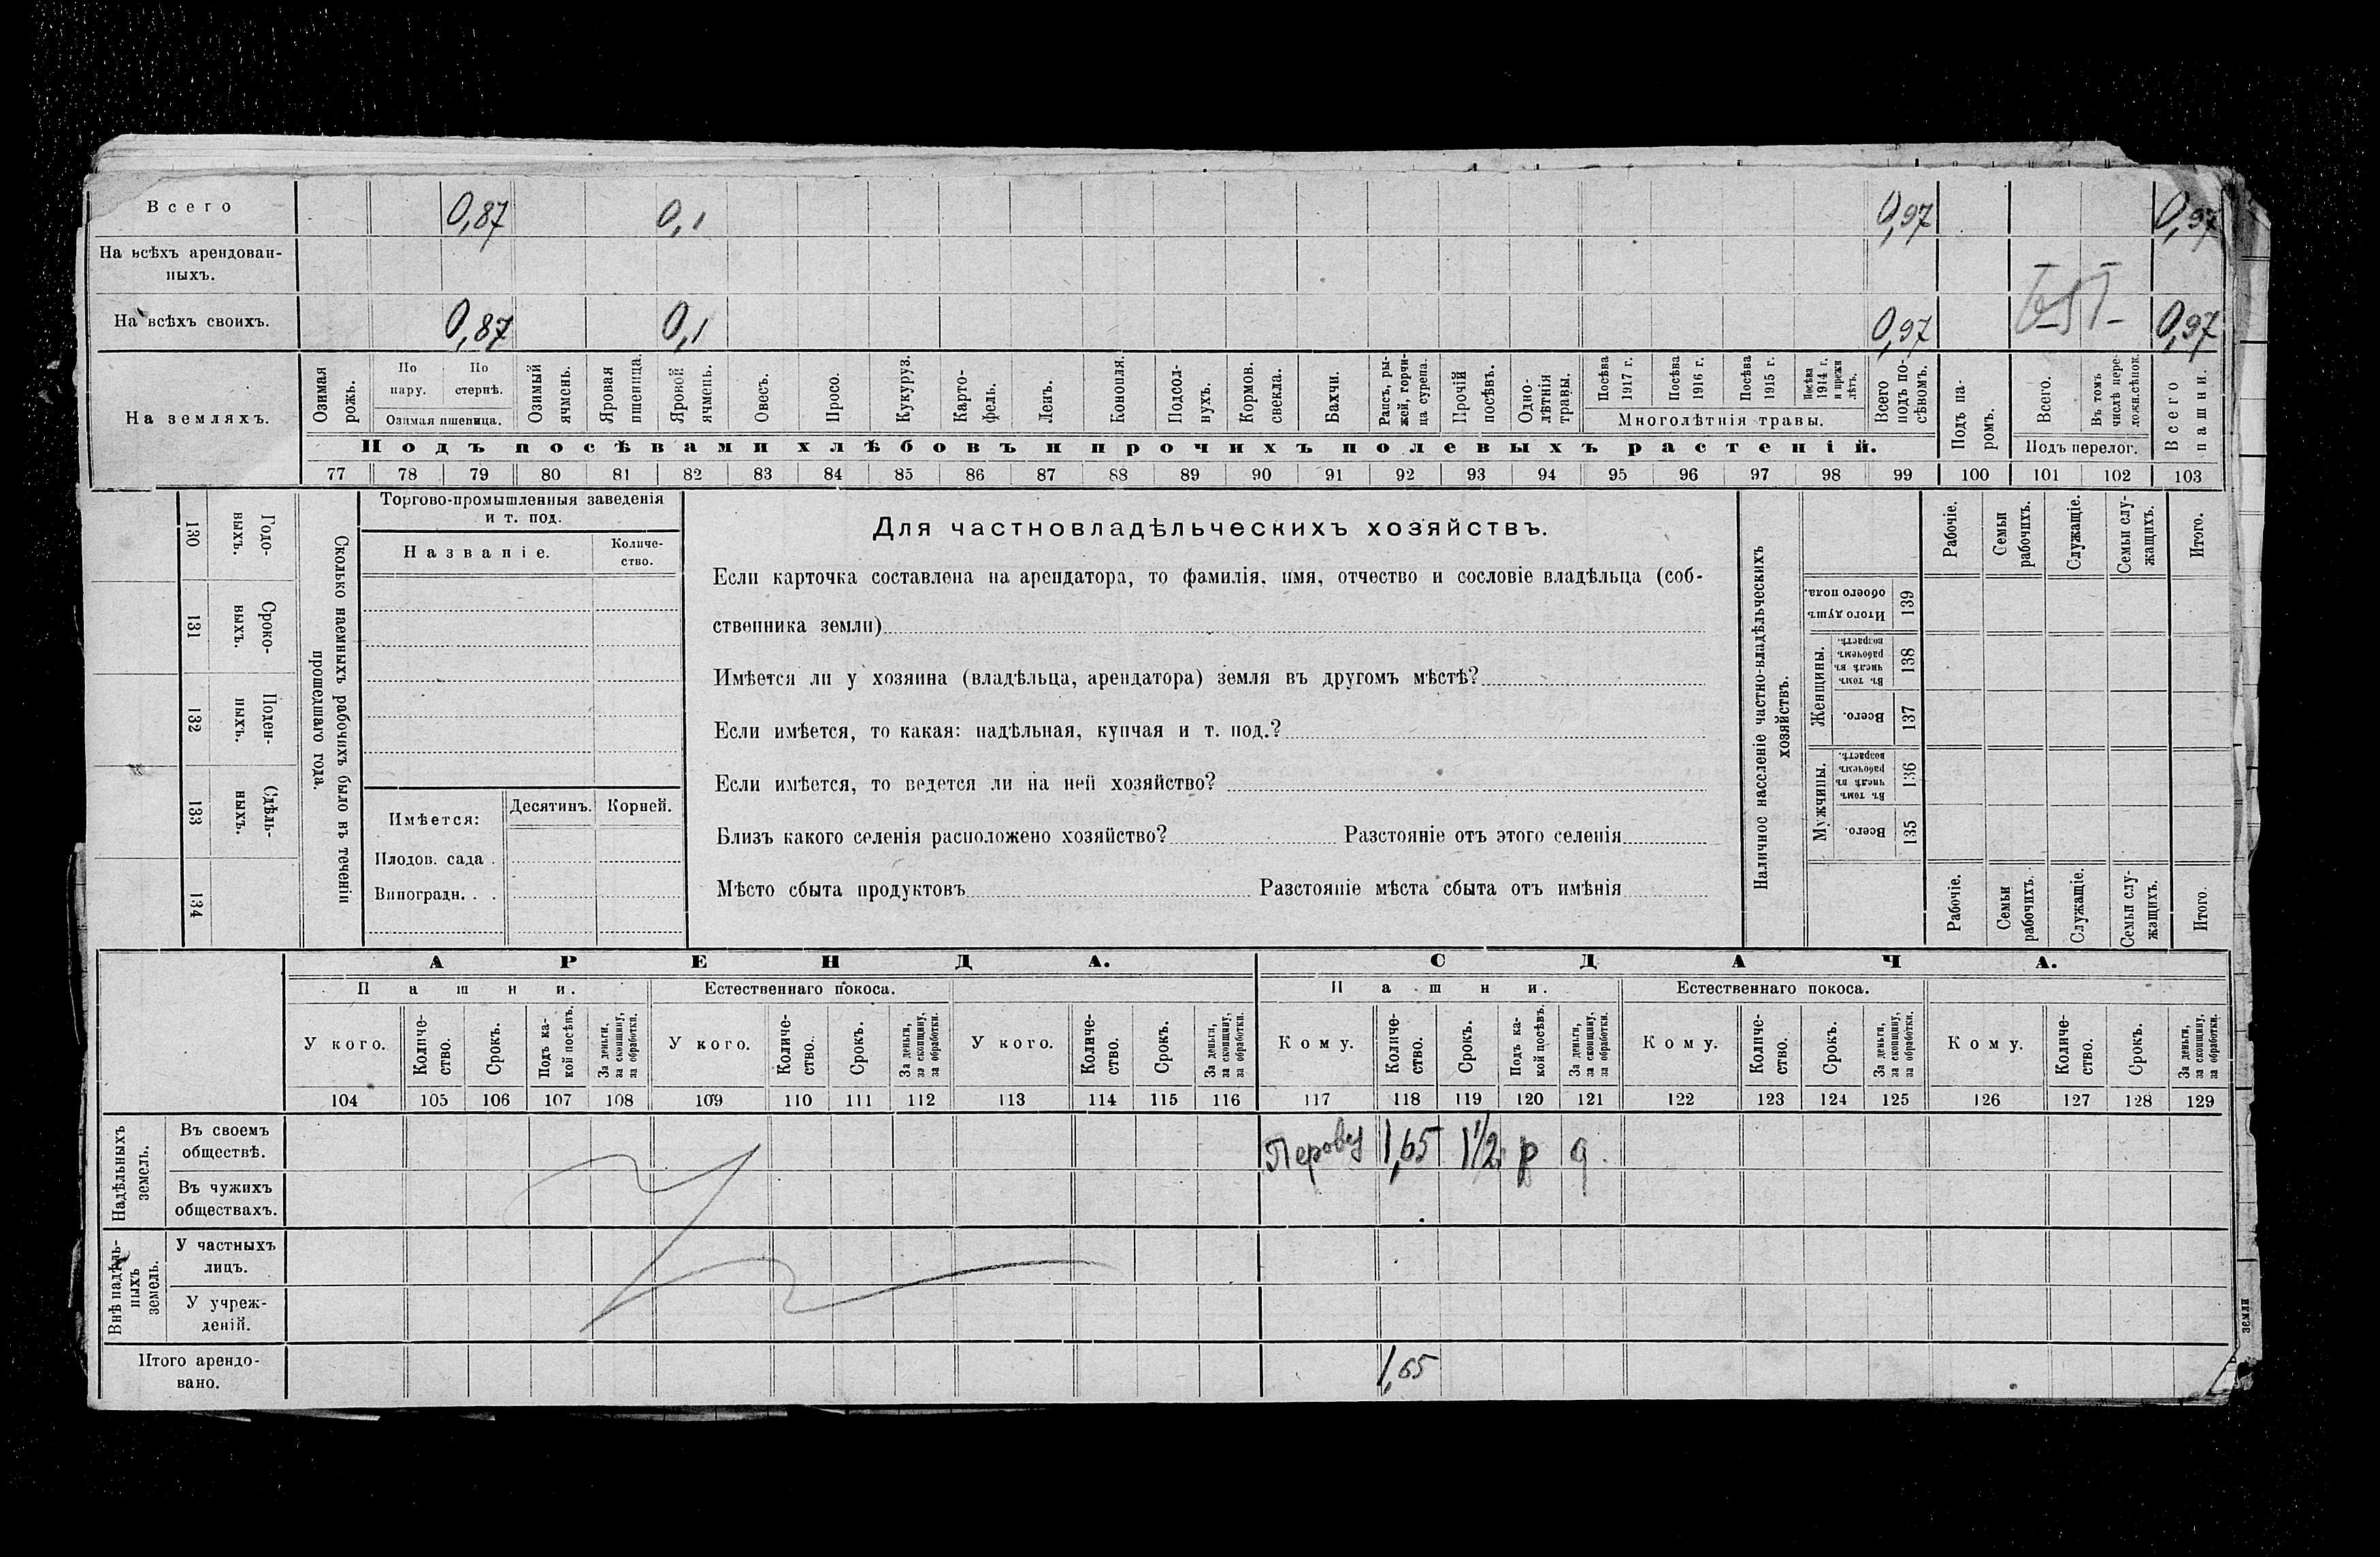 Всего 0,87 0,1 0,97 0,97
На всѣхъ арендован-
ныхъ.
На всѣхъ своихъ. 0,87 0,1 0,97 0,97
На земляхъ.
Озимая рожь.
По пару.
По стернѣ.
Озимая пшеница.
Озимый ячмень.
Яровая пшеница.
Яровой ячмень.
Овесъ.
Просо.
Кукуруз.
Карто-
фель.
Ленъ.
Конопля.
Подсол-
нухъ.
Кормов.
свекла.
Бахчи.
Рапсъ, ры-
жей, горчи-
ца сурепа.
Прочій
посѣвъ.
Одно-
лѣтнія
травы.
Посѣва
1917 г.
Посѣва
1916 г.
Посѣва
1915 г.
Посѣва
1914 г.
и прежн
лѣтъ.
Многолѣтнія травы.
Всего
подъ по-
сѣвомъ.
Подъ па-
ромъ.
Всего.
Въ томъ
числѣ пере-
ложн.сѣнок.
Подъ перелог.
Всего
пашни.
Подъ посѣвами хлѣбовъ и прочихъ полевыхъ растеній.
77 78 79 80 81 82 83 84 85 86 87 88 89 90 91 92 93 94 95 96 97 98 99 100 101 102 103
130 Годо-
выхъ.
131 Сроко-
выхъ.
132 Поден-
ныхъ.
133 Сдѣль-
ныхъ.
134
Сколько наемныхъ рабочихъ было въ теченіи
прошедшаго года.
Торгово-промышленныя заведенія
и т. под.
Названіе.
Количе-
ство.
Имѣется:
Десятинъ. Корней.
Плодов. сада .
Виноградн. . .
Для частновладѣльческихъ хозяйствъ.
Если карточка составлена на арендатора, то фамилія, имя, отчество и сословіе владѣльца (соб-
ственника земли)
Имѣется ли у хозяина (владѣльца, арендатора) земля въ другомъ мѣстѣ?
Если имѣется, то какая: надѣльная, купчая и т. под.?
Если имѣется, то ведется ли на ней хозяйство?
Близъ какого селенія расположено хозяйство? Разстояніе отъ этого селенія
Мѣсто сбыта продуктовъ Разстояніе мѣста сбыта отъ имѣнія
Наличное населеніе частно-владѣльческихъ
хозяйствъ.
Рабочіе.
Семьи
рабочихъ.
Служащіе.
Семьи слу-
жащихъ.
Итого.
Итого душъ
обоего пола.
139
Женщины.
Въ томъ
числѣ въ
рабочемъ
возрастѣ.
138
Всего.
137
Мужчины.
Въ томъ
числѣ въ
рабочемъ
возрастѣ.
136
Всего.
135
Рабочіе.
Семьи
рабочихъ.
Служащіе.
Семьи слу-
жащихъ.
Итого.
АРЕНДА. СДАЧА.
Пашни. Естественнаго покоса. Пашни. Естественнаго покоса.
У кого.
Количе-
ство.
Срокъ.
Подъ ка-
кой посѣвъ.
За деньги,
за скопщину,
за обработки.
У кого.
Количе-
ство.
Срокъ.
За деньги,
за скопщину,
за обработки.
У кого.
Количе-
ство.
Срокъ.
За деньги,
за скопщину,
за обработки.
Кому.
Количе-
ство.
Срокъ.
Подъ ка-
кой посѣвъ.
За деньги,
за скопщину,
за обработки.
Кому.
Количе-
ство.
Срокъ.
За деньги,
за скопщину,
за обработки.
Кому.
Количе-
ство.
Срокъ.
За деньги,
за скопщину,
за обработки.
104 105 106 107 108 109 110 111 112 113 114 115 116 117 118 119 120 121 122 123 124 125 126 127 128 129
Надѣльныхъ
земель.
Въ своемъ
обществѣ.
1,65 1½ р д.
Въ чужихъ
обществахъ.
Внѣ надѣль-
ныхъ
земель.
У частныхъ
лицъ.
У учреж-
деній.
Итого арендо-
вано.
1,65
земли